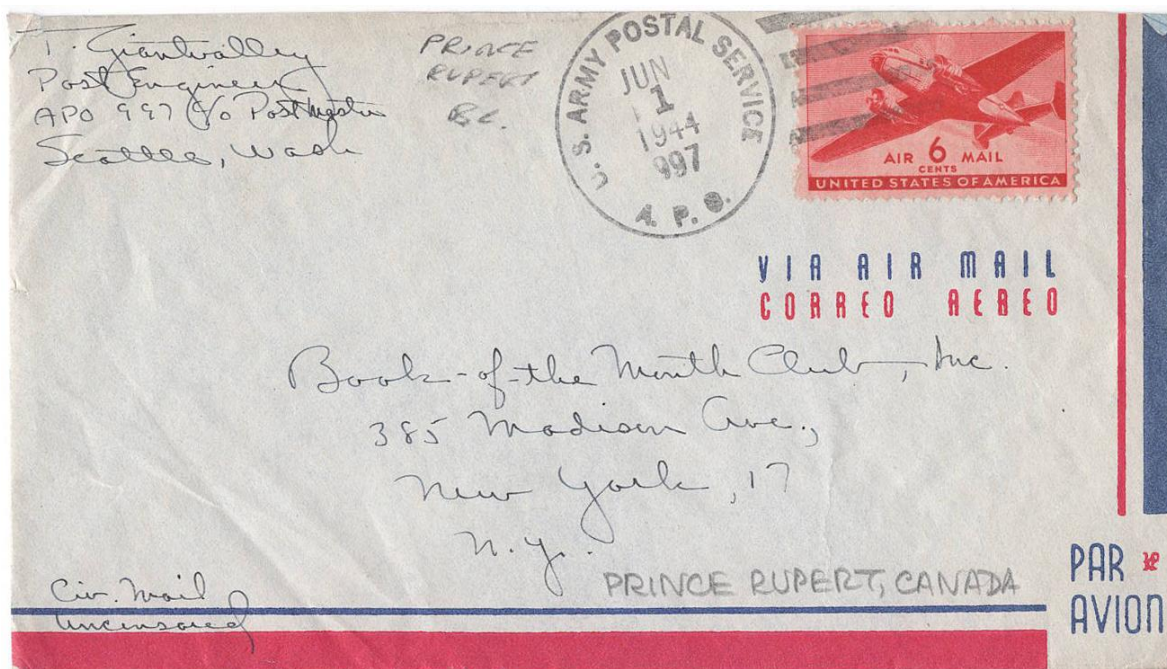 T. Giantvalley
Post Engineer
APO 997 c/o Postmaster
Seattle, Wash
PRINCE
RUPERT
B.C.
U.S. ARMY POSTAL SERVICE
JUN
1
1944
997
A. P. O.
AIR 6 MAIL
CENTS
UNITED STATES OF AMERICA
VIA AIR MAIL
CORREO AEREO
Book-of-the Month Club, Inc.
385 Madison Ave.,
New York, 17
N.Y.
PRINCE RUPERT, CANADA
Civ. Mail
Uncensored
PAR
AVION